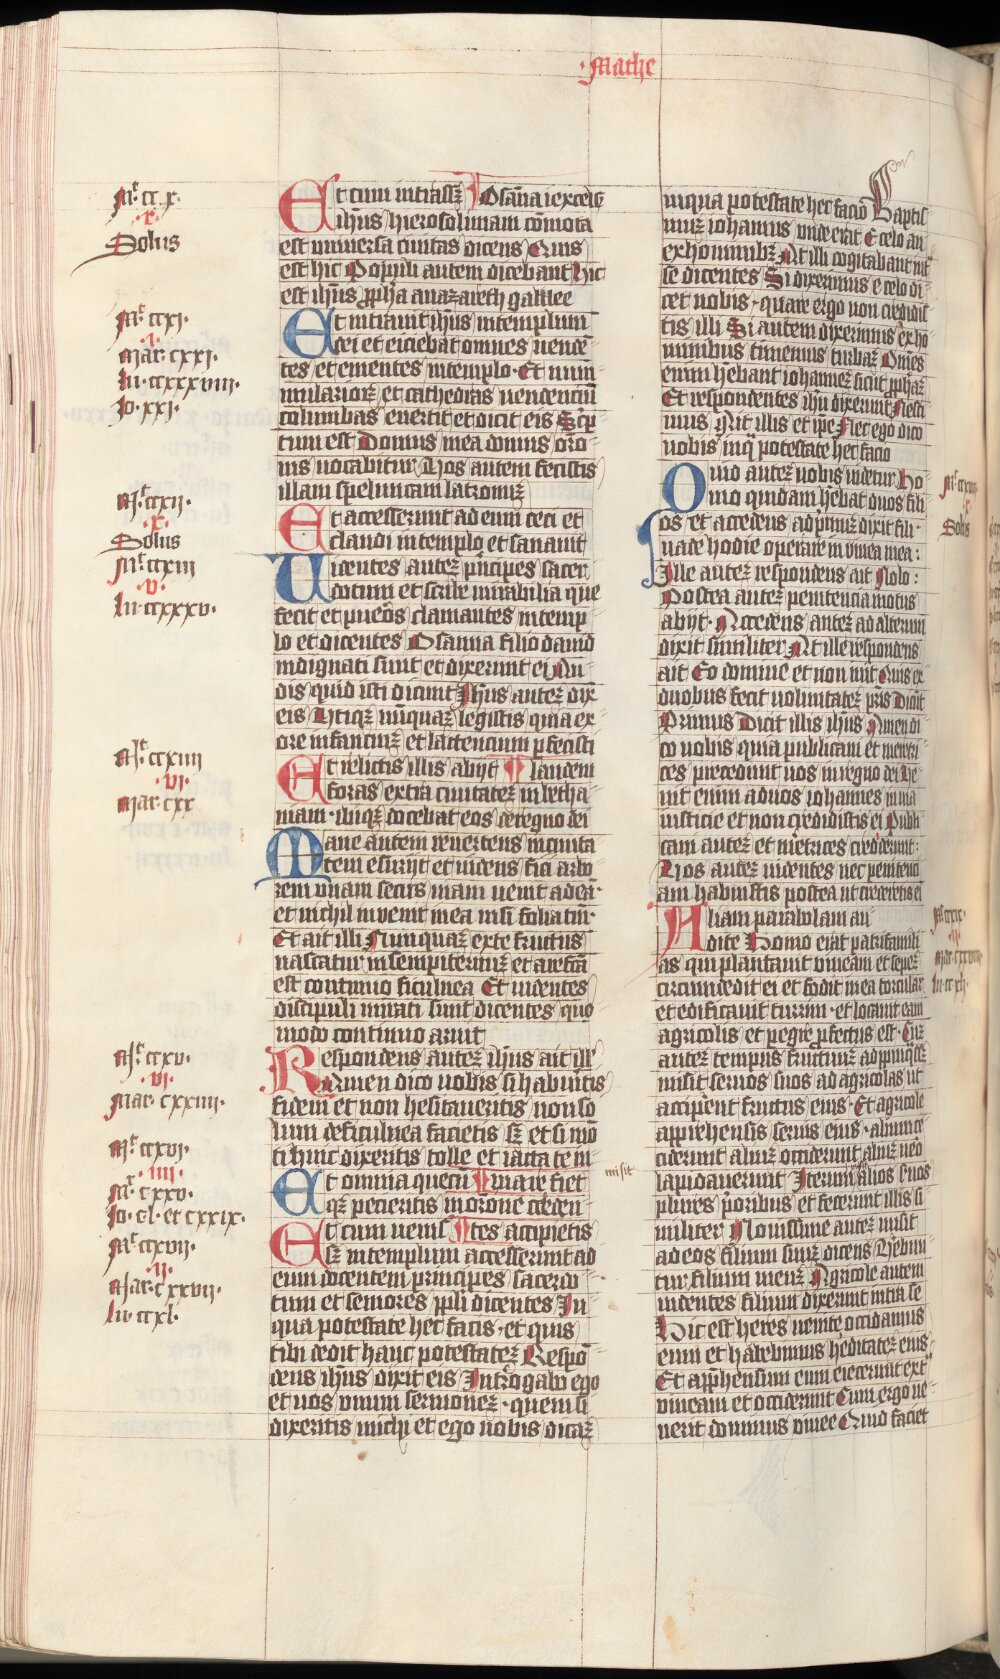 Mathe
Mt ccx
x
Solus
Mt ccxi
i
Mar cxxi
Lu ccxxxviiii
Jo xxi
Mt ccxii
x
Solus
Mt ccxiii
v
Lu ccxxxv
Mt ccxiiii
vi
Mar cxx
Mt ccxv
vi
Mar cxxiiii
Mt ccxvi
iiii
Mr cxxv
Jo cl et cxxix
Mt ccxvii
ii
Mar cxxvii
Lu ccxl
Et cum intrassꝫ Osanna i excels
ih̅us hierosolimam co̅mota
est universa civitas dicens Quis
est hic Populi autem dicebant Hic
est ih̅us ꝓpha anazareth galilee
Et intravit ih̅us in templum
dei et eiciebat omnes vende̅
tes et ementes in templo Et num
mulariorꝫ et cathedras vendenciu̅
columbas evertit et dicit eis Sc̅p
tum est Domus mea domus oro
nis vocabitur Vos autem fecistis
illam speluncam latronuꝫ
Et accesserunt ad eum ceci et
claudi in templo et sanavit
Videntes autez p̅ncipes sacer
dotum et scribe mirabilia que
fecit et pueros clamantes in temp
lo et dicentes Osanna filio david
indignati sunt et dixerunt ei Au
dis quid isti dicunt Ih̅us autez dix
eis Utiqꝫ nu̅quaꝫ legistis quia ex
ore infanciuꝫ et lactencium ꝑfecisti
Et relictis illis abijt laudem
foras extra civitatez in betha
niam ibiqꝫ docebat eos de regno dei
Mane autem revertens in civita
tem esurijt et videns fici arbo
rem unam secus viam venit ad ea̅
et nichil invenit in ea nisi folia tm̅
Et ait illi Nunquaꝫ ex te fructus
nascatur in sempiternuꝫ et arefc̅a
est continuo ficulnea Et videntes
discipuli mirati sunt dicentes quo
modo continuo aruit
Respondens autez ih̅us ait ill
Amen dico vobis si habuitis
fidem et non hesitaveritis non so
lum de ficulnea facietis sꝫ et si mo̅
ti huic dixeritis tolle et iacta te in
Et omnia quecu̅ mare fiet
qꝫ pecieritis in oro̅ne crede̅
Et cum venis tes accipietis
sꝫ in templum accesserunt ad
eum docentem principes sacerdo
tum et seniores ppli dicentes In
qua potestate hec facis et quis
tibi dedit hanc potestatez Respo̅
dens ih̅us dixit eis Interrogabo ego
et vos unum sermonez quem si
dixeritis michi et ego vobis dicaꝫ
misit
in qua potestate hec facio Baptis
muꝫ iohannis unde erat E celo an
ex hominibꝫ At illi cogitabant int̅
se dicentes Si dixerimus e celo di
cet nobis quare ergo non credidis
tis illi Si autem dixerimus ex ho
minibus timemus turbaꝫ Omes
enim he̅bant iohannez sicut ꝓphaꝫ
Et respondentes ihu̅ dixerunt Nesci
mus Ait illis et ipe̅ Nec ego dico
vobis in qᷓ potestate hec facio
Quid autez vobis videtur Ho
mo quidam he̅bat duos fili
os et accedens ad p̅muꝫ dixit fili
vade hodie operare in vinea mea
Ille autez respondens ait Nolo
Postea autez penitencia motus
abijt Accedens autez ad alterum
dixit similiter At ille respondens
ait Eo domine et non ivit Quis ex
duobus fecit voluntatez pr̅is Dicu̅t
Primus Dicit illis ih̅us Amen di
co vobis quia publicani et meretri
ces precedunt vos in regno dei Ve
nit enim ad vos iohannes in via
iusticie et non credidistis ei Publi
cani autez et me̅trices crediderunt
Vos autez videntes nec penitenci
am habuistis postea ut crederetis ei
Aliam parabolam au
dite Homo erat paterfamili
as qui plantavit vineam et sepez
circumdedit ei et fodit in ea torcular
et edificavit turrim et locavit eam
agricolis et peg̅re ꝓfectus est Cuꝫ
autez tempus fructuuꝫ appropi̅qsꝫ
misit servos suos ad agricolas ut
acciperent fructus eius Et agricole
apprehensis servis eius aliu̅ ce
ciderunt aliuꝫ occiderunt aliuꝫ vero
lapidaverunt Iterum alios s̅vos
plures p̅oribus et fecerunt illis si
militer Novissime autez misit
ad eos filium suuꝫ dicens Verebun
tur filium meuꝫ Agricole autem
videntes filium dixerunt intra se
Hic est heres venite occidamus
eum et habebimus he̅ditatez eius
Et app̅hensum eum eiecerunt ext̅
vineam et occiderunt Cum ergo ve
nerit dominus vinee Quid faciet
Solus
Mt ccxix
ii
Mar cxxviii
Lu ccxli